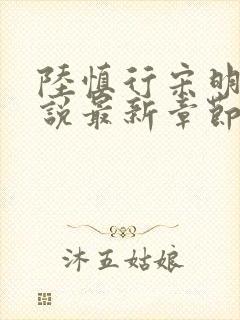 陸慎行宋明
說最新章節
沐五姑娘